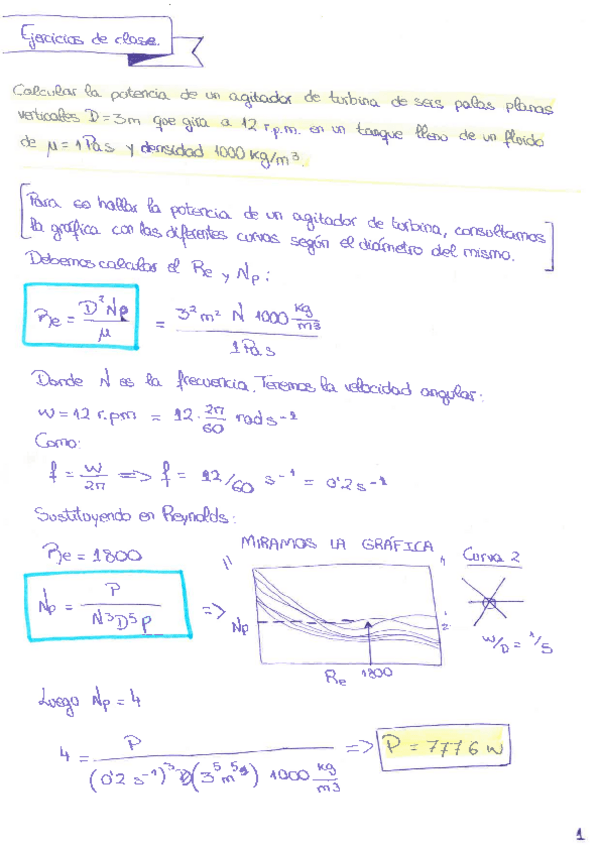 Ejercicios de clase.
Calcular la potencia de un agitador de turbina de seis palas planas
verticales D=3m que gira a 12 r.p.m. en un tanque lleno de un fluido
de μ=1Pas y densidad 1000 Kg/m³.
Para so hallar la potencia de un agitador de turbina, consultamos
la gráfica con las diferentes curvas según el diámetro del mismo.
Debemos calcular el Re y Np:
Re = D²Nρ/μ = 3² m² N 1000 kg/m3 / 1Pas
Donde N es la frecuencia. Tenemos la velocidad angular:
W=12 r.p.m = 12·2π/60 rad s⁻¹
Como:
f = W/2π => f = 12/60 s⁻¹ = 0'2 s⁻¹
Sustituyendo en Reynolds:
Re = 1800
MIRAMOS LA GRÁFICA
Curva 2
Np = P / N³D⁵ρ =>
Np
1
2
Re 1800
W/D = 1/5
Luego Np = 4
4 = P / (0'2 s⁻¹)³ (3⁵ m⁵) 1000 kg/m3 => P = 7776 W
1